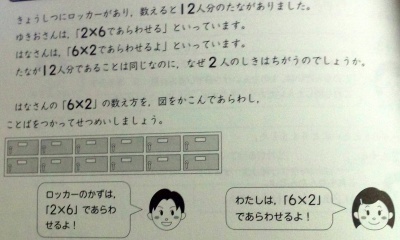 きょうしつにロッカーがあり、数えると12人分のたながありました。
ゆきおさんは、「2×6であらわせる」といっています。
はなさんは、「6×2であらわせるよ」といっています。
たなが12人分であることは同じなのに、なぜ2人のしきはちがうのでしょうか。
はなさんの「6×2」の数え方を、図をかこんであらわし、
ことばをつかってせつめいしましょう。
ロッカーのかずは、
「2×6」であらわ
せるよ！
わたしは、「6×2」
であらわせるよ！